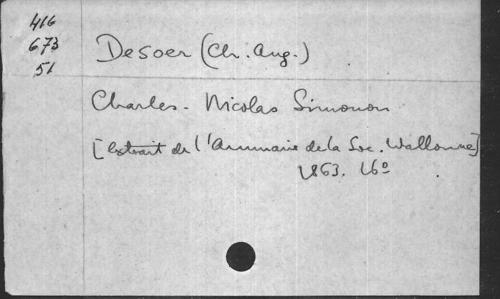 416
673
51
Desoer (Ch. Aug.)
Charles-Nicolas Simonon
[Extrait de l'Annuaire de la Soc. Wallonne]
1863. 16º